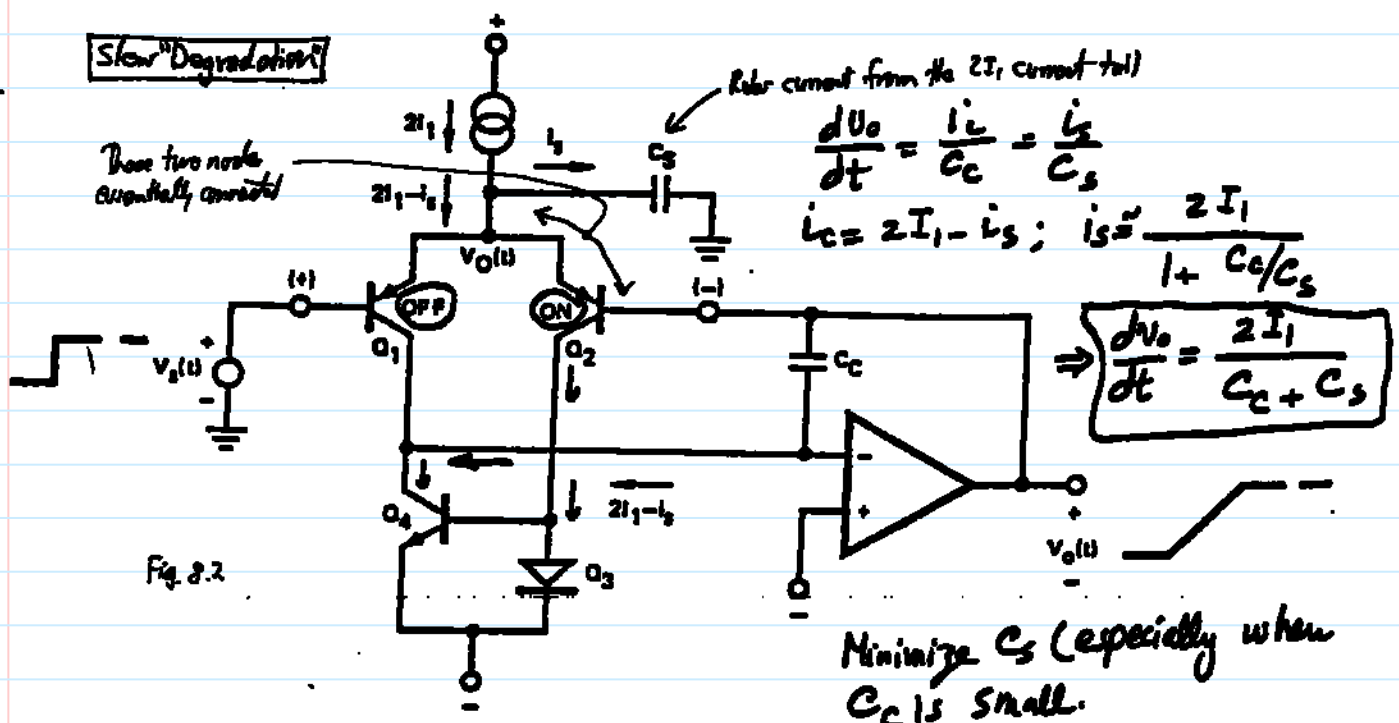 Slew "Degradation"
+
2I₁
iₛ
Cₛ
Robs current from the 2I₁ current tail)
Those two node
essentially connected
2I₁-iₛ
V_O(t)
(+)
OFF
ON
(-)
Q₁
Q₂
C_C
+
Vₛ(t)
-
Q₄
2I₁-iₛ
Q₃
-
+
-
+
V_O(t)
-
-
Fig 8.2
dv₀/dt = i_c/C_c = iₛ/Cₛ
i_c = 2I₁ - iₛ ; iₛ ≅ 2I₁/(1 + C_c/Cₛ)
⇒ dv₀/dt = 2I₁/(C_c + Cₛ)
Minimize Cₛ (especially when
C_c is small.